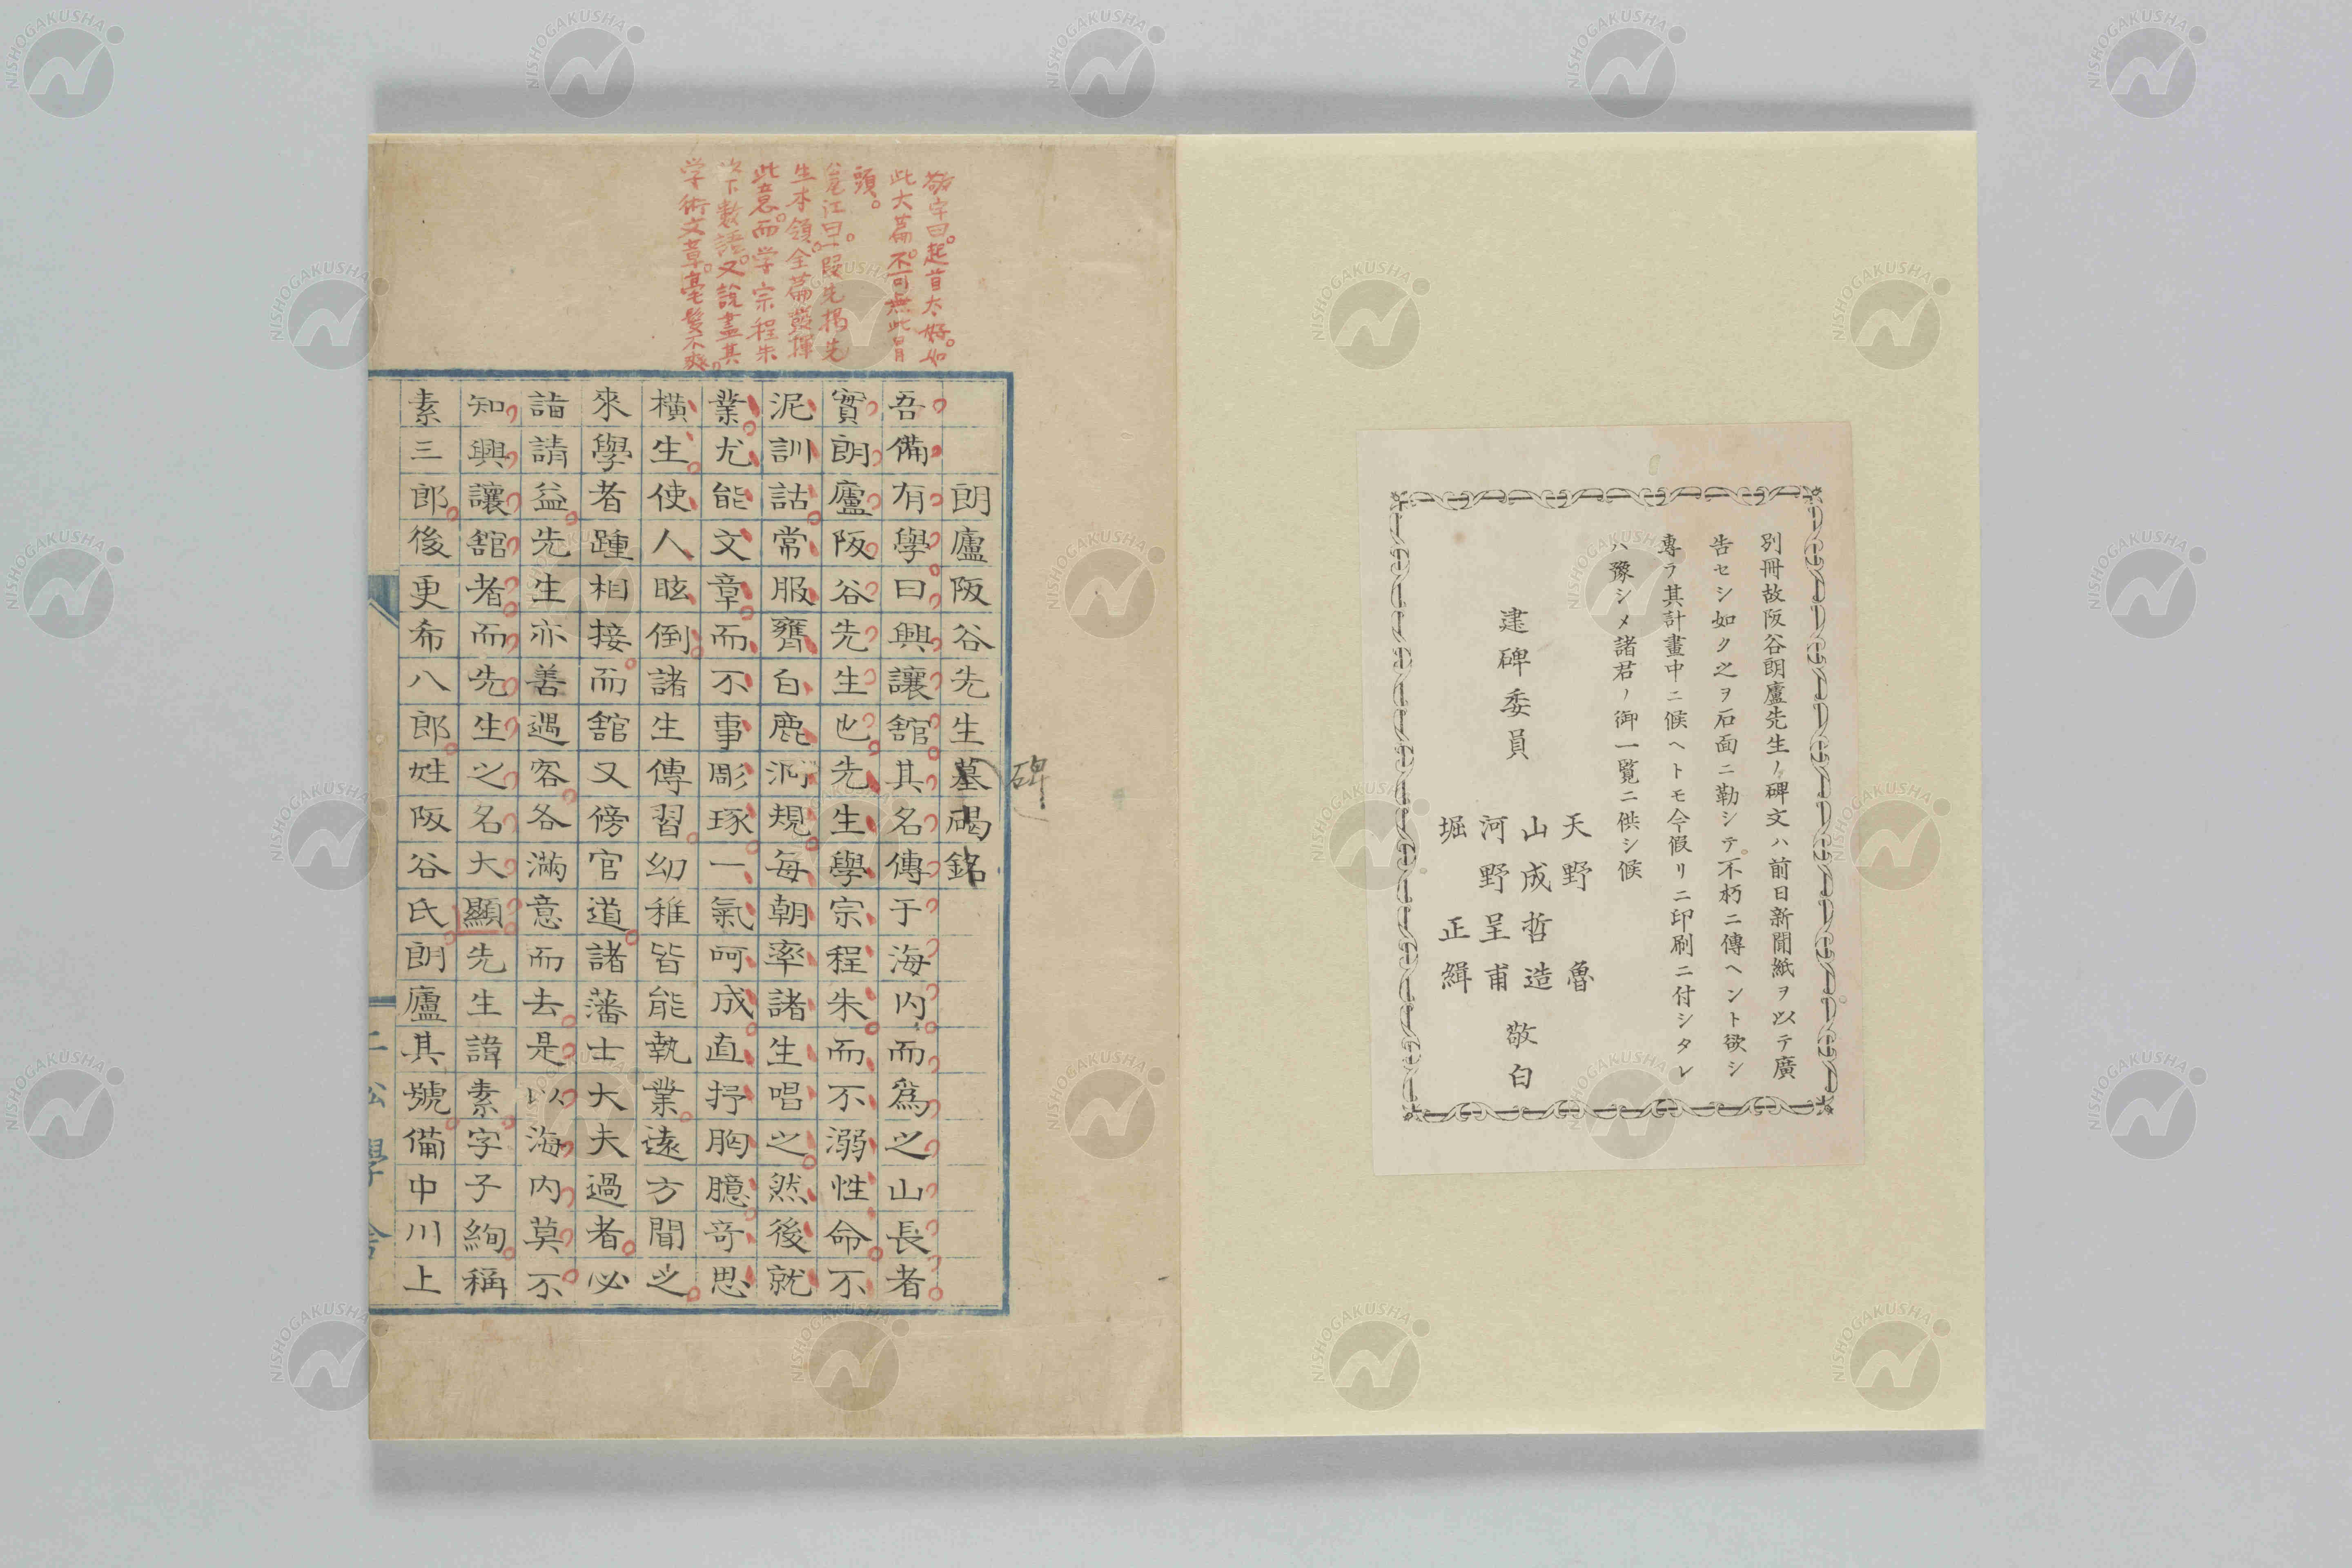 別冊故阪谷朗廬先生ノ碑文ハ前日新聞紙ヲ以テ廣
告セシ如ク之ヲ石面ニ勒シテ不朽ニ傳ヘント欲シ
專ラ其計畫中ニ候ヘトモ今假リニ印刷ニ付シタレ
ハ豫シメ諸君ノ御一覧ニ供シ候
建碑委員
天野 魯
山成哲造
河野呈甫
堀 正緝
敬白
敬宇曰。起首太好。如
此大篇。不可無此冒
頭。
公尾江曰。一段先揭先
生本領。全篇發揮
此意。而学宗程朱
以下數語。又說盡其
学術文章。毫髮不爽。
朗廬阪谷先生墓碣銘
碑
吾備有學曰興讓舘其名傳于海内而爲之山長者
實朗廬阪谷先生也先生學宗程朱而不溺性命不
泥訓詁常服膺白鹿洞規每朝率諸生唱之然後就
業尤能文章而不事彫琢一氣呵成直抒胸臆奇思
橫生使人眩倒諸生傳習幼稚皆能執業遠方聞之
來學者踵相接而舘又傍官道諸藩士大夫過者必
詣請益先生亦善遇客各滿意而去是以海内莫不
知興讓舘者而先生之名大顯先生諱素字子絢稱
素三郎後更希八郎姓阪谷氏朗廬其號備中川上
二松學舍
NISHOGAKUSHA